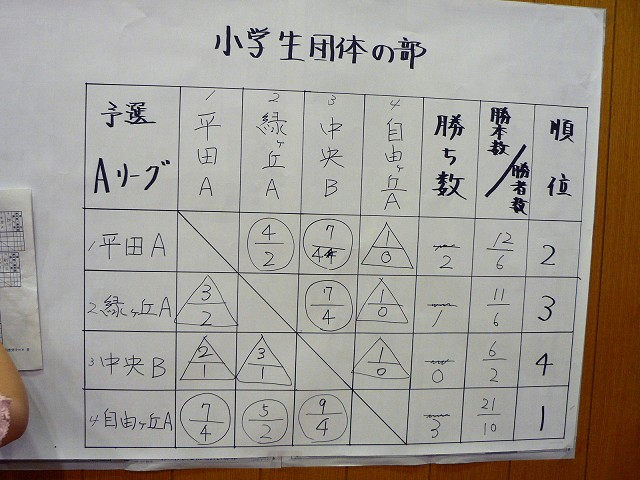 小学生団体の部
予選 Aリーグ 1 平田A 2 緑ヶ丘A 3 中央B 4 自由ヶ丘A 勝ち数 勝本数/勝者数 順位
1 平田A 4/2 7/4 1/0 2 12/6 2
2 緑ヶ丘A 3/2 7/4 1/0 1 11/6 3
3 中央B 2/1 3/1 1/0 0 6/2 4
4 自由ヶ丘A 7/4 5/2 9/4 3 21/10 1